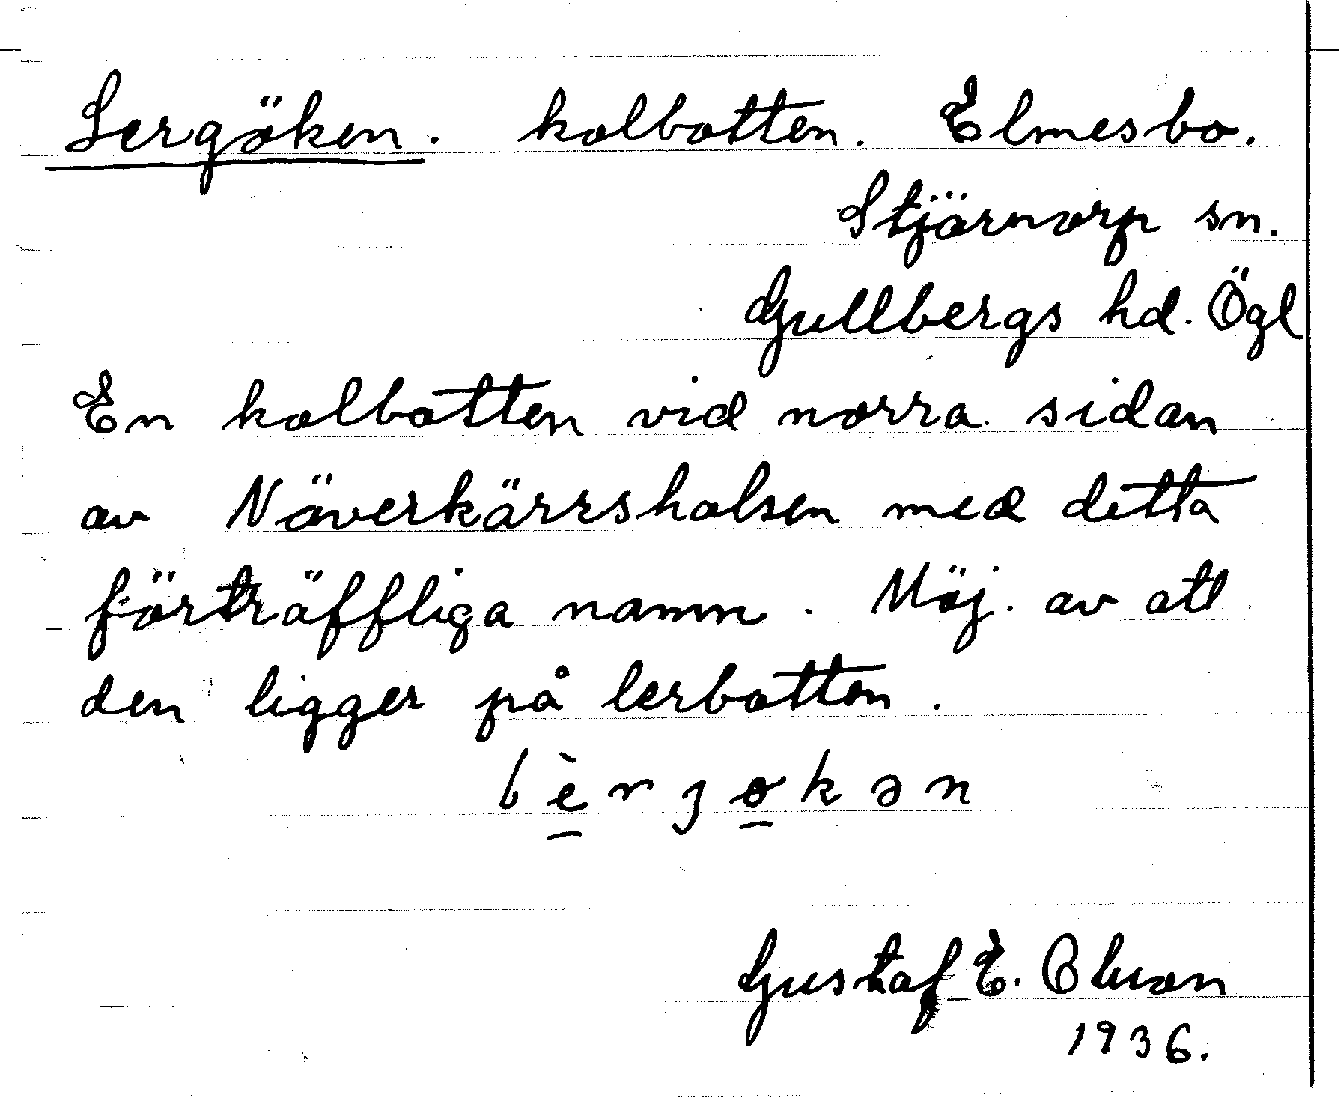 Lergöken. kolbotten. Elmesbo.
Stjärnorp sn.
Gullbergs hd. Ögl
En kolbotten vid norra sidan
av Näverkärrshalsen med detta
förträffliga namn. Möj. av att
den ligger på lerbotten.
Gustaf E. Olsson
1936.